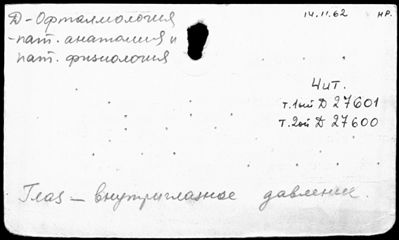 Д-Офталмология 14.11.62 НР.
-пат. анатомия и
пат. физиология
Чит.
т.1ый Д 27601
т.2ой Д 27600
Глаз – внутриглазное давление.